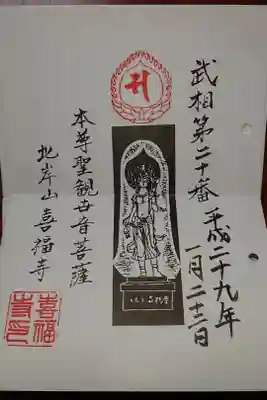 武相第二十番
平成二十九年
一月二十二日
本尊聖観世音菩薩
北岸山喜福寺
喜福寺印